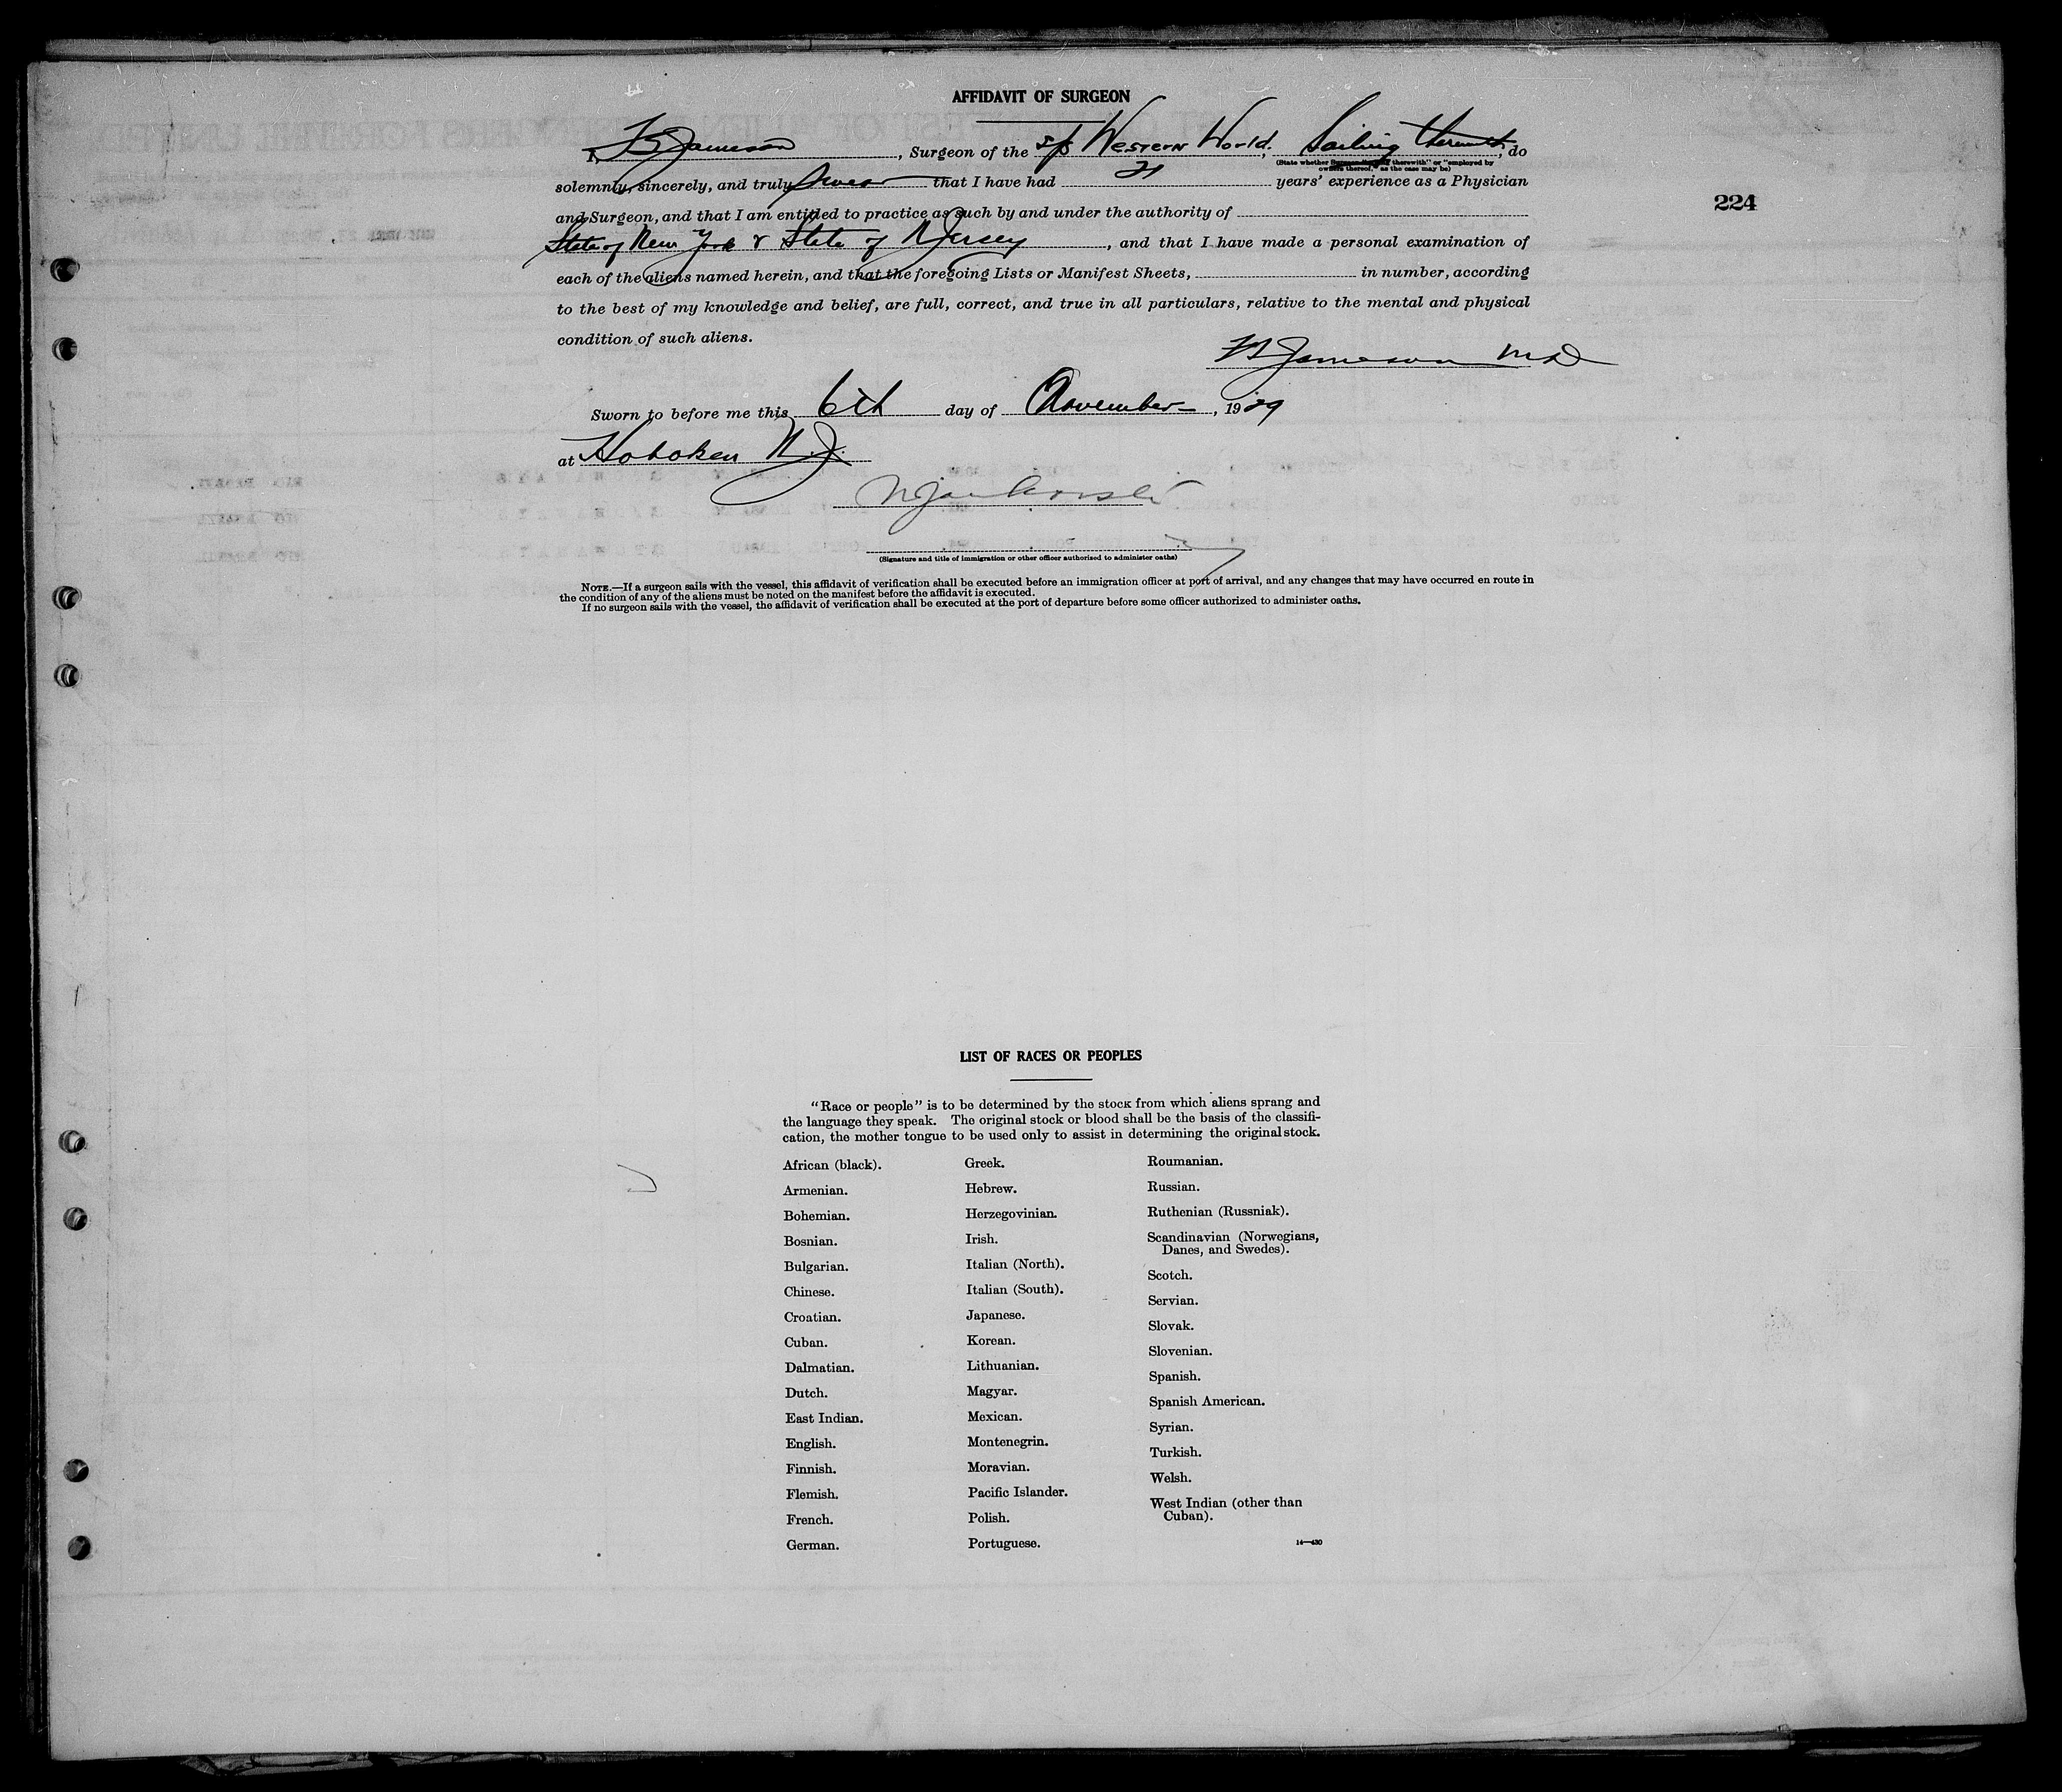 AFFIDAVIT OF SURGEON
I, F B Jameson, Surgeon of the s/s Western World, Sailing therewith, do
(State whether "Surgeon sailing therewith" or "employed by owners thereof," as the case may be)
solemnly, sincerely, and truly swear that I have had 21 years' experience as a Physician
224
and Surgeon, and that I am entitled to practice as such by and under the authority of
State of New York & State of N Jersey, and that I have made a personal examination of
each of the aliens named herein, and that the foregoing Lists or Manifest Sheets, in number, according
to the best of my knowledge and belief, are full, correct, and true in all particulars, relative to the mental and physical
condition of such aliens.
F B Jameson MD
Sworn to before me this 6th day of November, 1929
at Hoboken N.J.
(Signature and title of immigration or other officer authorized to administer oaths)
NOTE.—If a surgeon sails with the vessel, this affidavit of verification shall be executed before an immigration officer at port of arrival, and any changes that may have occurred en route in
the condition of any of the aliens must be noted on the manifest before the affidavit is executed.
If no surgeon sails with the vessel, the affidavit of verification shall be executed at the port of departure before some officer authorized to administer oaths.
LIST OF RACES OR PEOPLES
"Race or people" is to be determined by the stock from which aliens sprang and
the language they speak. The original stock or blood shall be the basis of the classifi-
cation, the mother tongue to be used only to assist in determining the original stock.
African (black).
Armenian.
Bohemian.
Bosnian.
Bulgarian.
Chinese.
Croatian.
Cuban.
Dalmatian.
Dutch.
East Indian.
English.
Finnish.
Flemish.
French.
German.
Greek.
Hebrew.
Herzegovinian.
Irish.
Italian (North).
Italian (South).
Japanese.
Korean.
Lithuanian.
Magyar.
Mexican.
Montenegrin.
Moravian.
Pacific Islander.
Polish.
Portuguese.
Roumanian.
Russian.
Ruthenian (Russniak).
Scandinavian (Norwegians,
Danes, and Swedes).
Scotch.
Servian.
Slovak.
Slovenian.
Spanish.
Spanish American.
Syrian.
Turkish.
Welsh.
West Indian (other than
Cuban).
14—430